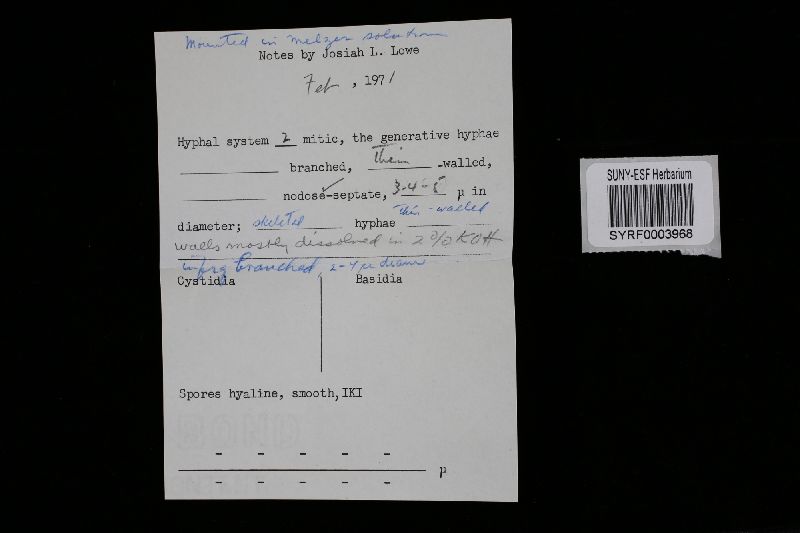 Mounted in Melzer solution
Notes by Josiah L. Lowe
Feb , 1971
Hyphal system 2 mitic, the generative hyphae
branched, thin -walled,
✓ nodose-septate, 3-4-5 µ in
diameter; skeletal hyphae thin-walled
walls mostly dissolved in 2% KOH
infreq branched, 2-4 µ diam
Cystidia Basidia
Spores hyaline, smooth, IKI
- - - - -
µ
- - - - -
SUNY-ESF Herbarium
SYRF0003968